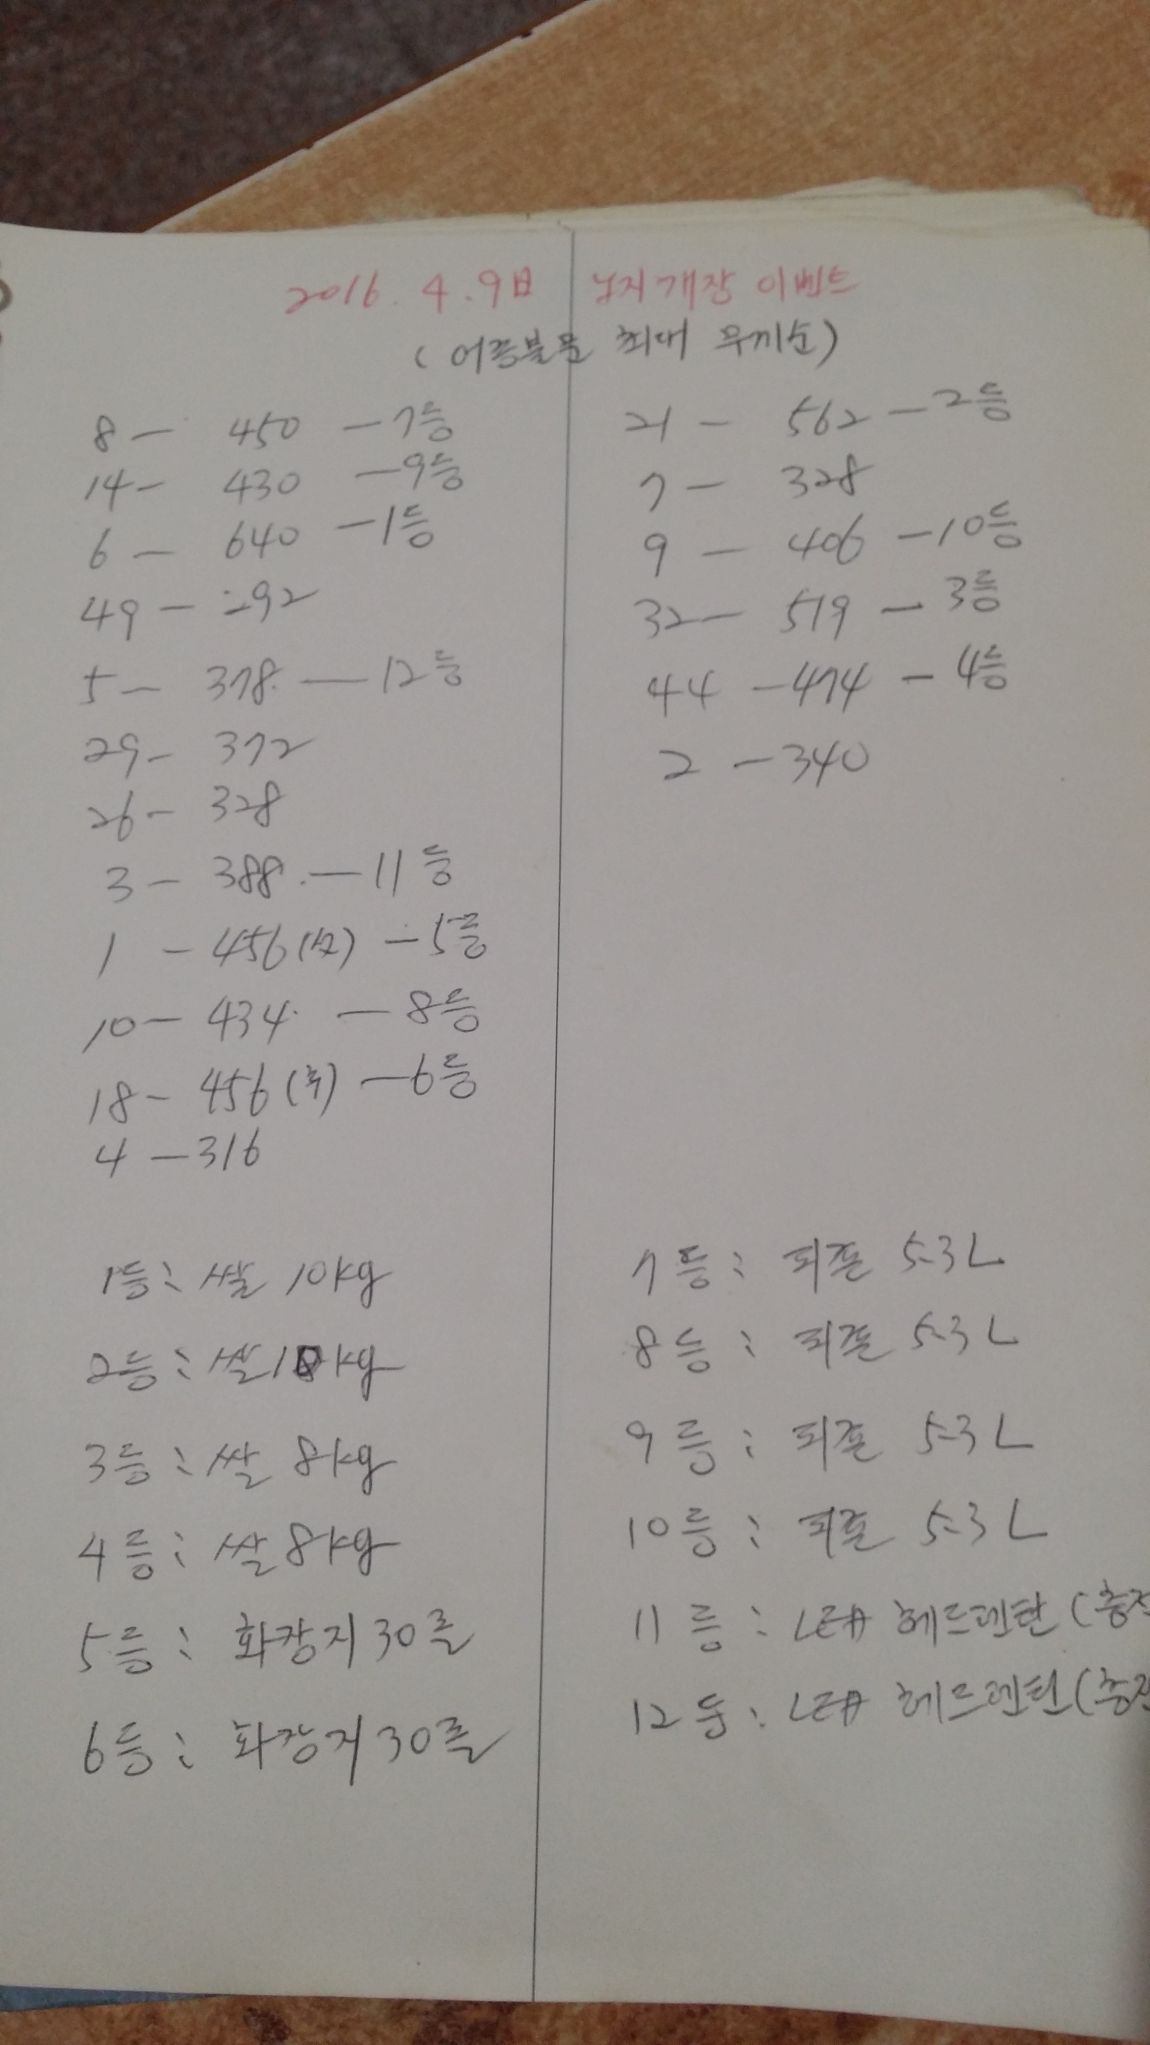 2016. 4. 9日 낚시개장 이벤트
(어종불문 최대 무게순)
8 - 450 - 7등
14 - 430 - 9등
6 - 640 - 1등
49 - 292
5 - 378. - 12등
29 - 372
26 - 328
3 - 388. - 11등
1 - 456 - 5등
10 - 434. - 8등
18 - 456 - 6등
4 - 316
21 - 562 - 2등
7 - 328
9 - 406 - 10등
32 - 519 - 3등
44 - 474 - 4등
2 - 340
1등: 쌀 10kg
2등: 쌀 10kg
3등: 쌀 8kg
4등: 쌀 8kg
5등: 화장지 30롤
6등: 화장지 30롤
7등: 피죤 5.3L
8등: 피죤 5.3L
9등: 피죤 5.3L
10등: 피죤 5.3L
11등: 헤드렌턴 (충전
12등: 헤드렌턴 (충전